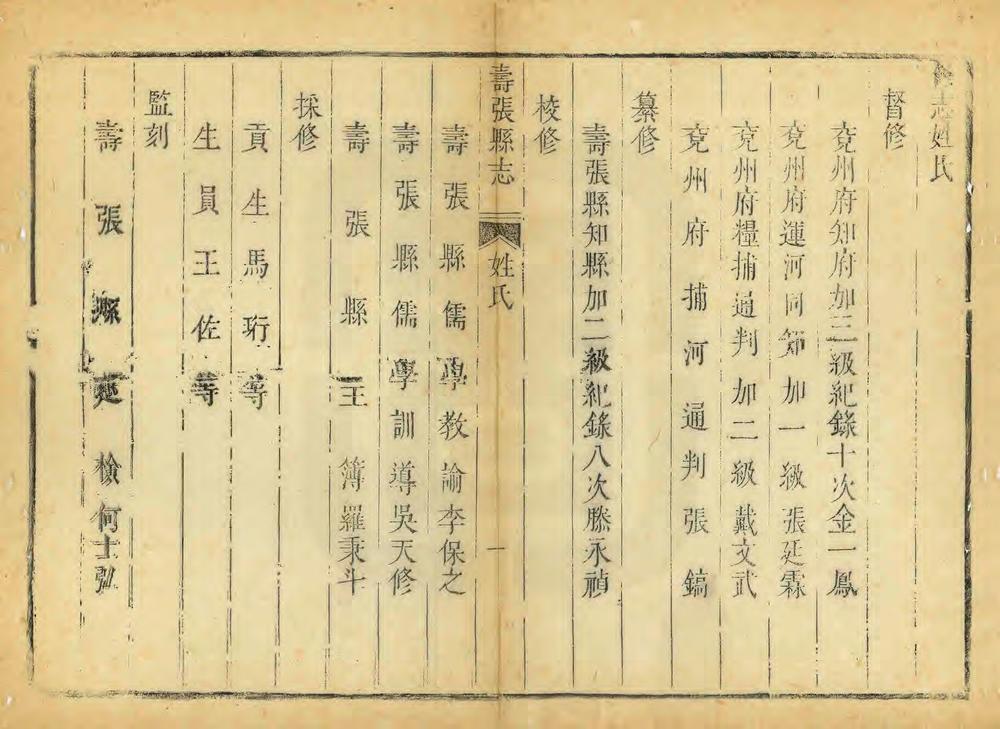 志姓氏
督修
兗州府知府加三級紀錄十次金一鳳
兗州府運河同知加一級張廷霖
兗州府糧捕通判加二級戴文武
兗州府捕河通判張鎬
纂修
壽張縣知縣加二級紀錄八次滕永禎
校修
壽張縣志
姓氏
一
壽張縣儒學教諭李保之
壽張縣儒學訓導吳天修
壽張縣主簿羅秉斗
採修
貢生馬珩等
生員王佐等
監刻
壽張縣廵檢何士弘